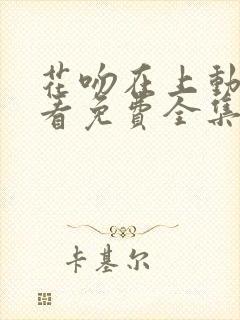 花吻在上動
看免費全集
卡基尔